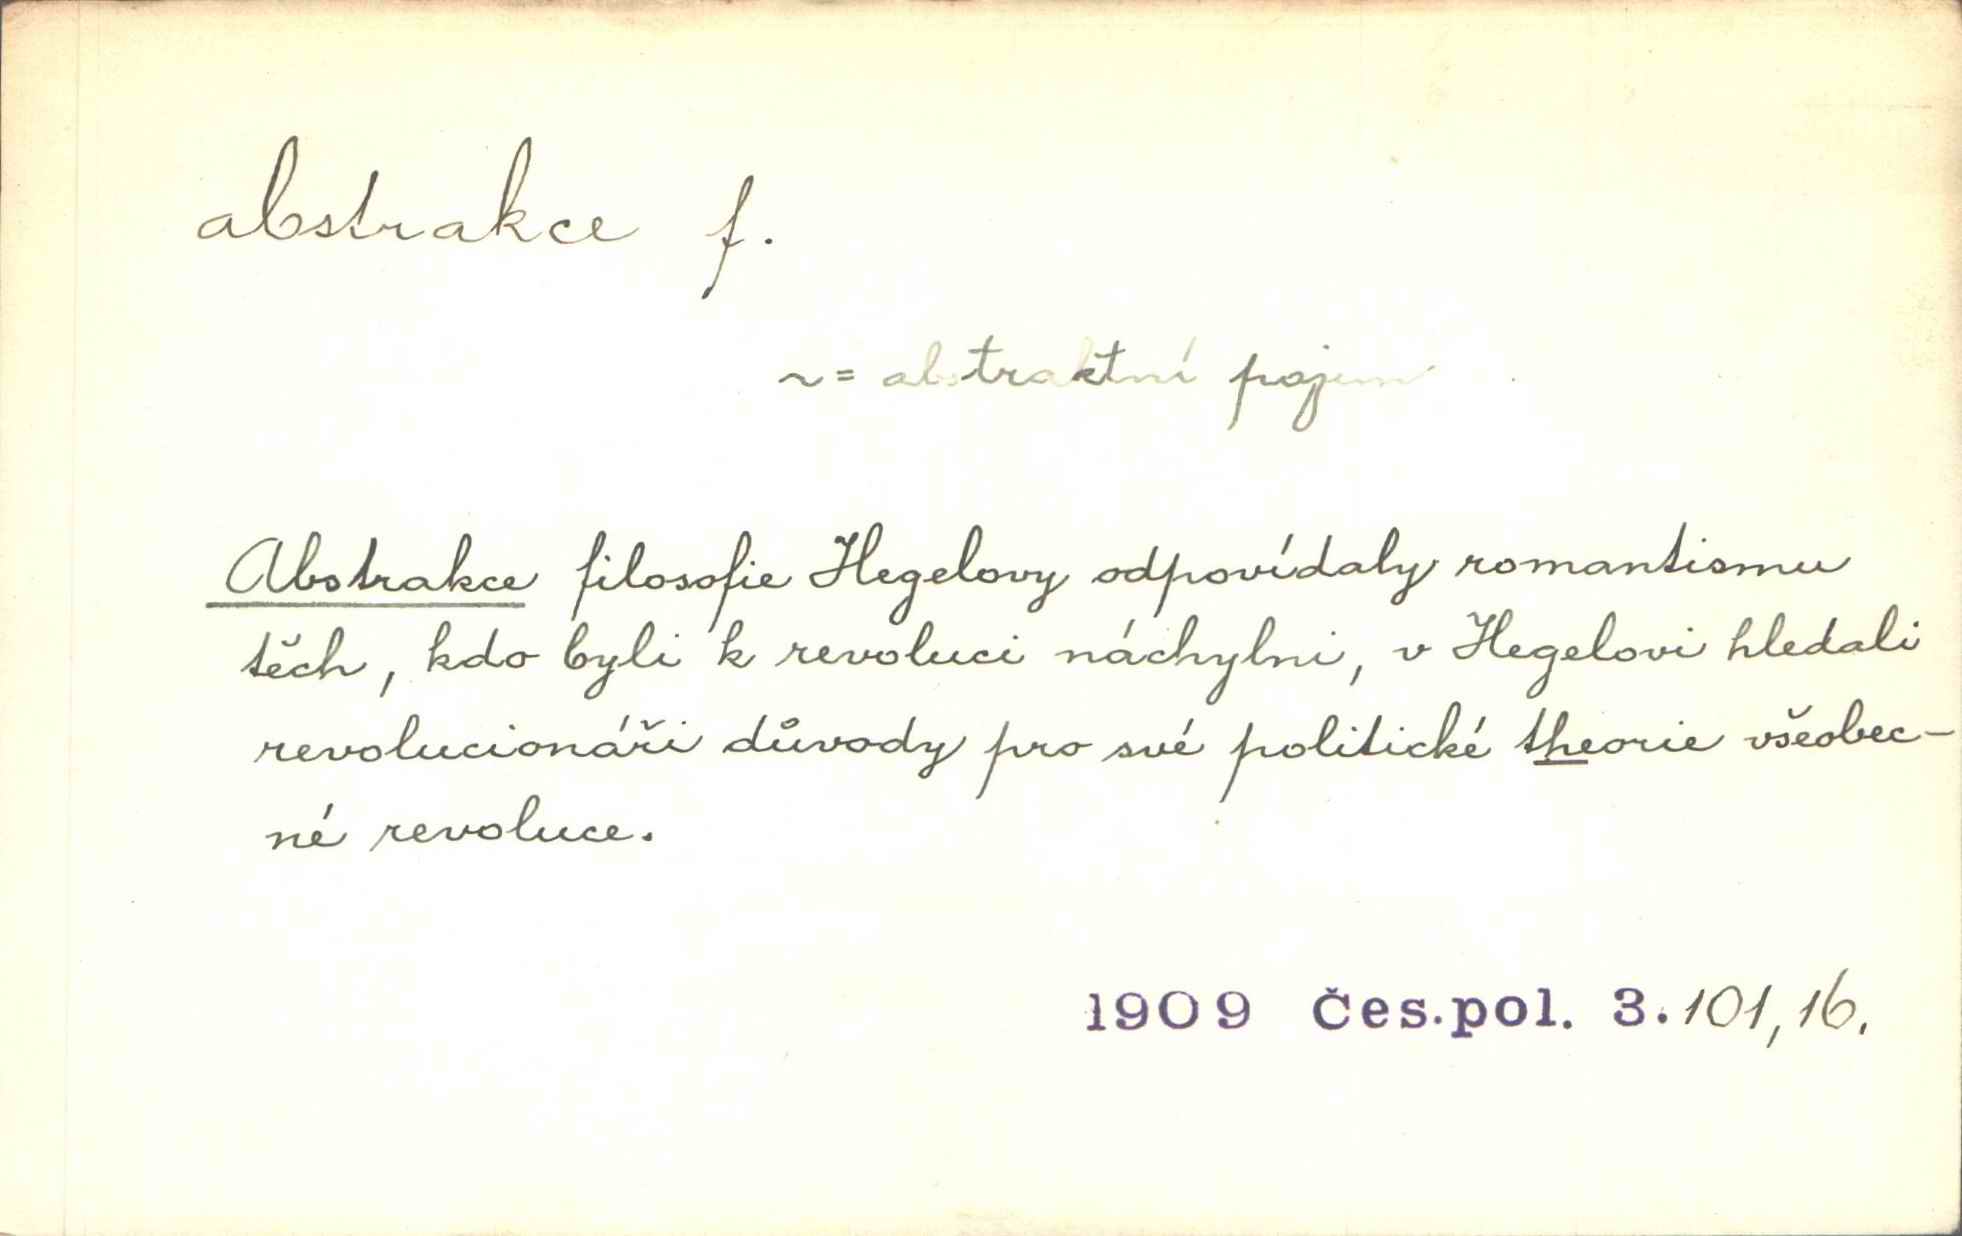 abstrakce f.
~ = abstraktní pojem
Abstrakce filosofie Hegelovy odpovídaly romantismu
těch, kdo byli k revoluci náchylni, v Hegelovi hledali
revolucionáři důvody pro své politické theorie všeobec-
né revoluce.
1909 Čes.pol. 3. 101,16.